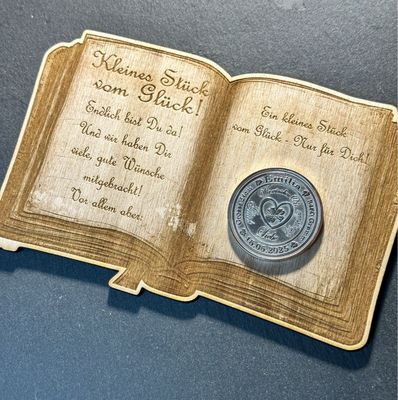 Kleines Stück
vom Glück!
Endlich bist Du da!
Und wir haben Dir
viele, gute Wünsche
mitgebracht!
Vor allem aber:
Ein kleines Stück
vom Glück - Nur für Dich!
Emilia
06.06.2025